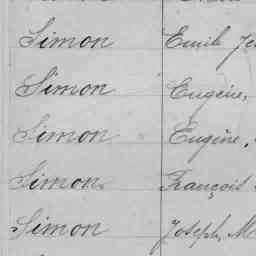 Simon Emile Je
Simon Eugène,
Simon Eugène,
Simon François
Simon Joseph, M